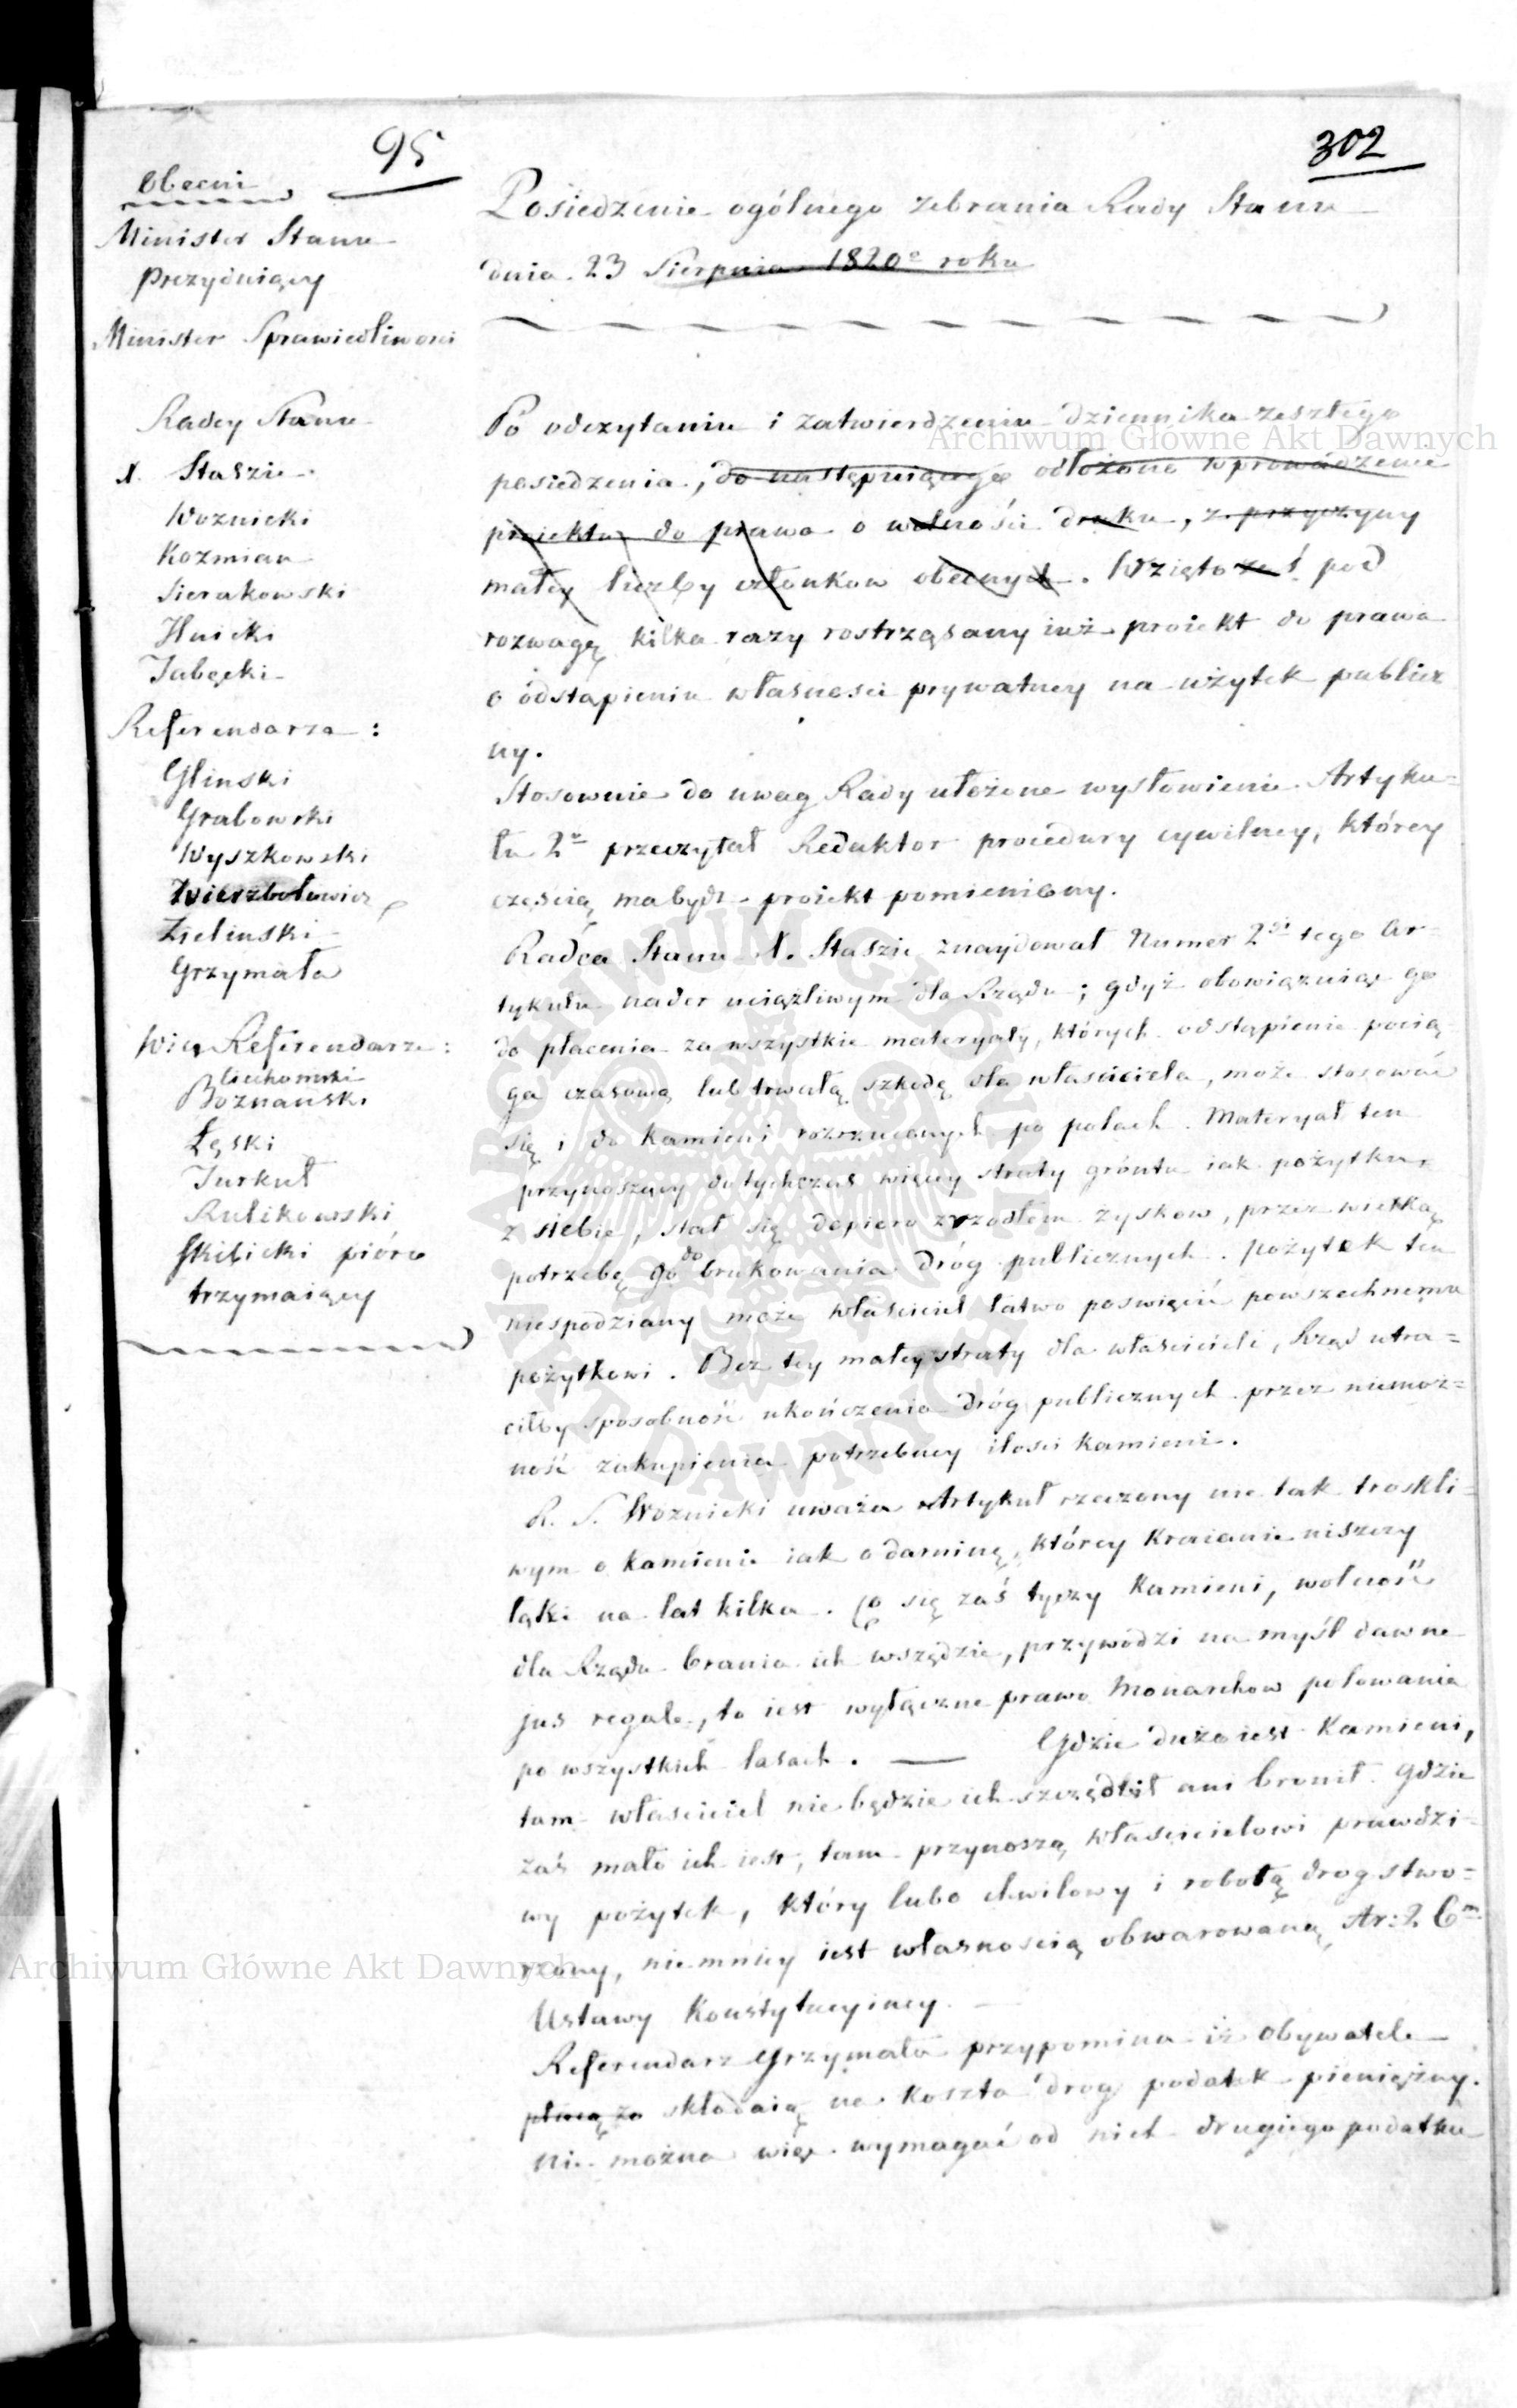 95
302
Obecni
Minister Stanu
Prezyduiący
Minister Sprawiedliwosci
Radcy Stanu
X. Staszic
Woznicki
Kozmian
Sierakowski
Hnicki
Referendarze:
Glinski
Grabowski
Wyszkowski
Zielinski
Grzymała
Wice Referendarze:
Ciechomski
Poznanski
Łęski
Turkuł
Rulikowski
Skibicki pióro
trzymaiący
Posiedzenie ogólnego zebrania Rady Stanu
dnia 23 Sierpnia 1820o roku
Po odczytaniu i zatwierdzeniu dziennika zeszłego
posiedzenia, do następuiącego odłożono wprowadzenie
proiektu do prawa o wolności druku, z przyczyny
małey liczby członkow obecnych. Wzięto pod
rozwagę kilka razy rostrząsany iuż proiekt do prawa
o odstąpieniu własnosci prywatney na użytek publicz
ny.
Stosownie do uwag Rady ułożone wysłowienie Artyku=
łu 2o przeczytał Redaktor procedury cywilney, którey
częscią ma bydź proiekt pomieniony.
Radca Stanu X. Staszic znaydował Numer 2gi tego Ar=
tykułu nader uciążliwym dla Rządu; gdyż obowiązuiąc go
do płacenia za wszystkie materyały, których odstąpienie pocią
ga czasową lub trwałą szkodę dla właściciela, może stosować
się i do kamieni rozrzuconych po polach. Materyał ten
przynoszący dotychczas więcey straty gróntu iak pożytku
z siebie, stał się dopiero zrzodłem zyskow, przez wielką
potrzebę go do brukowania dróg publicznych. pożytek ten
niespodziany może właściciel łatwo poswięcić powszechnemu
pożytkowi. Bez tey małey straty dla właścicieli, Rząd utra=
ciłby sposobność ukończenia dróg publicznych przez niemoż=
ność zakupienia potrzebney ilosci kamieni.
R. S. Woznicki uważa Artykuł rzeczony nie tak troskli=
wym o kamienie iak o darninę, którey kraianie niszczy
łąki na lat kilka. Co się zaś tyczy kamieni, wolność
dla Rządu brania ich wszędzie, przywodzi na myśl dawne
jus regale, to iest wyłączne prawo Monarchow polowania
po wszystkich lasach. — Gdzie dużo iest kamieni,
tam właściciel nie będzie ich szczędził ani bronił. Gdzie
zaś mało ich iest, tam przynoszą właścicielowi prawdzi=
wy pożytek, który lubo chwilowy i robotą drog stwo=
rzony, niemniey iest własnoscią obwarowaną Ar: 26m
Ustawy Konstytucyiney. —
Referendarz Grzymała przypomina iż obywatele
płacą za składaią na koszta drog podatek pieniężny.
nie można więc wymagać od nich drugiego podatku
Archiwum Główne Akt Dawnych
Archiwum Główne Akt Dawnych
ARCHIWUM GŁÓWNE AKT DAWNYCH